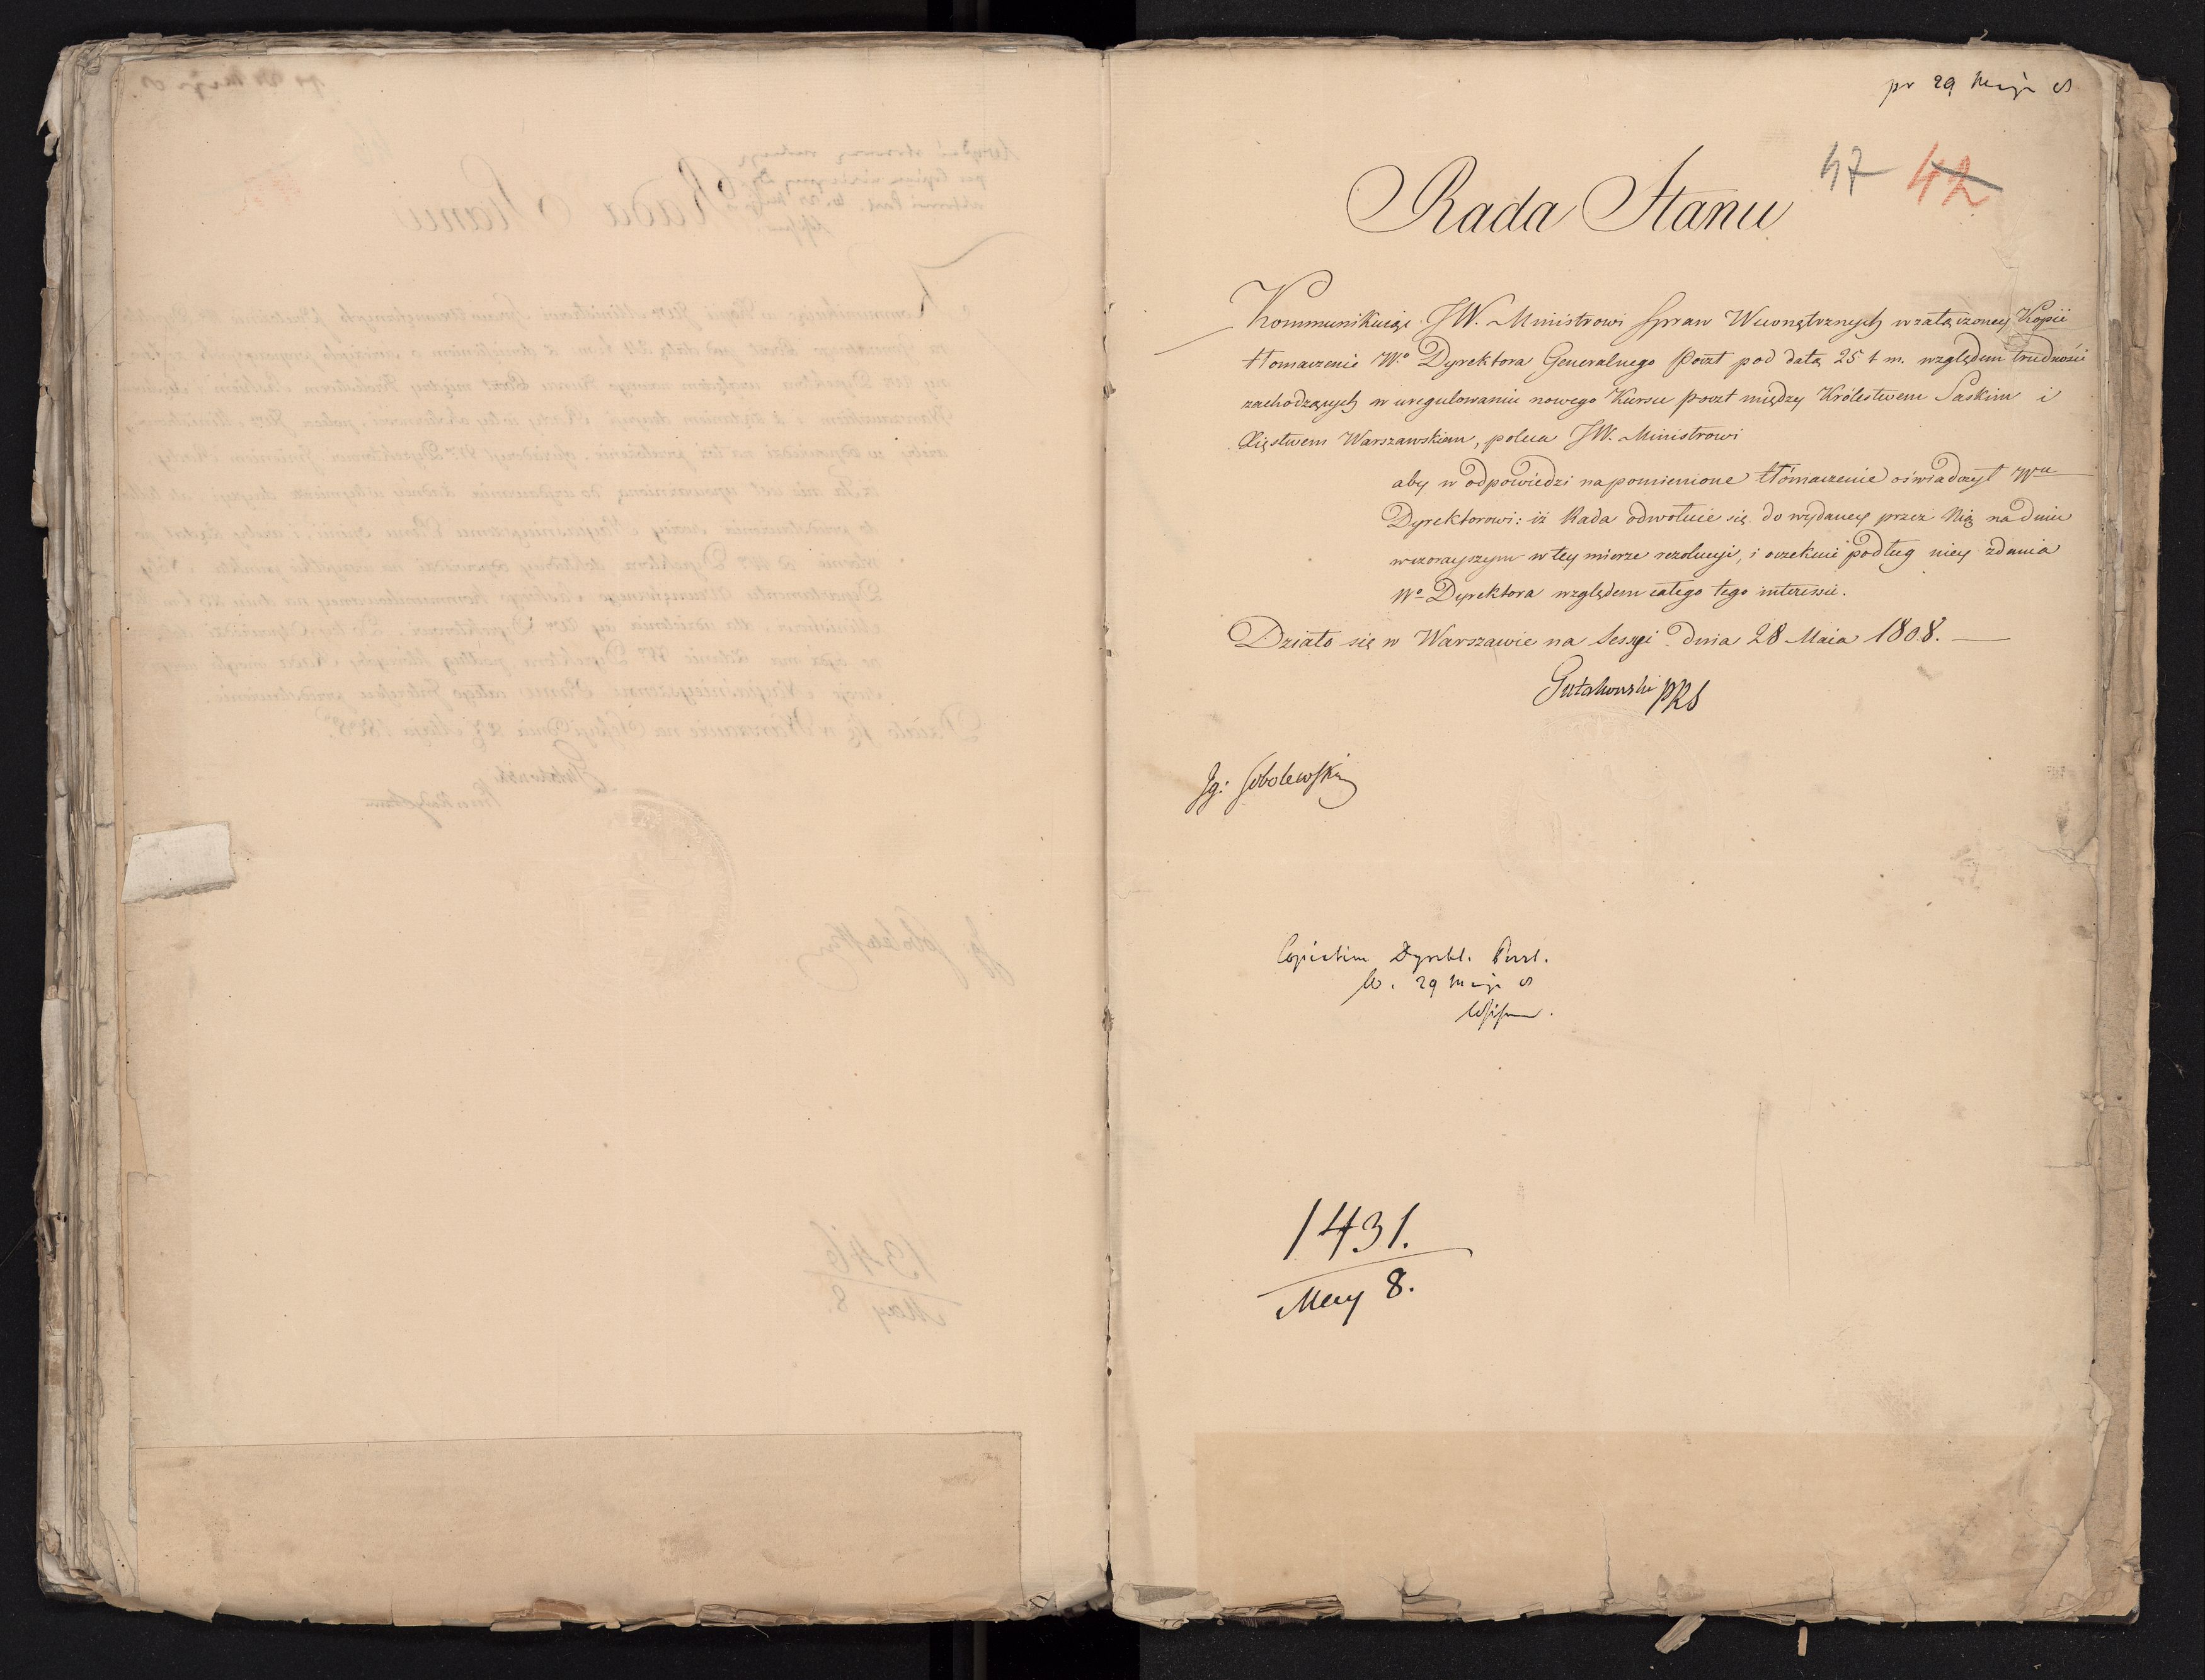 pr 29 Maja 8
47 42
Rada Stanu
Kommunikuiąc JW. Ministrowi Spraw Wewnętrznych w załączoney Kopii
tłomaczenie Wo. Dyrektora Generalnego Poczt pod datą 25 t. m. względem trudności
zachodzących w uregulowaniu nowego Kursu poczt między Królestwem Saskim i
Xięstwem Warszawskiem, poleca JW. Ministrowi
aby w odpowiedzi na pomienione tłómaczenie oświadczył Wu
Dyrektorowi: iż Rada odwołuie się do wydaney przez Nię na dniu
wczorayszym w tey mierze rezolucyi, i oczekuie podług niey zdania
Wo Dyrektora względem całego tego interessu.
Działo się w Warszawie na Sessyi Dnia 28 Maia 1808.
Gutakowski PRS
Ig: Sobolewski
Dyrekt. Poczt.
W. 29 Maja 8
1431.
May 8.